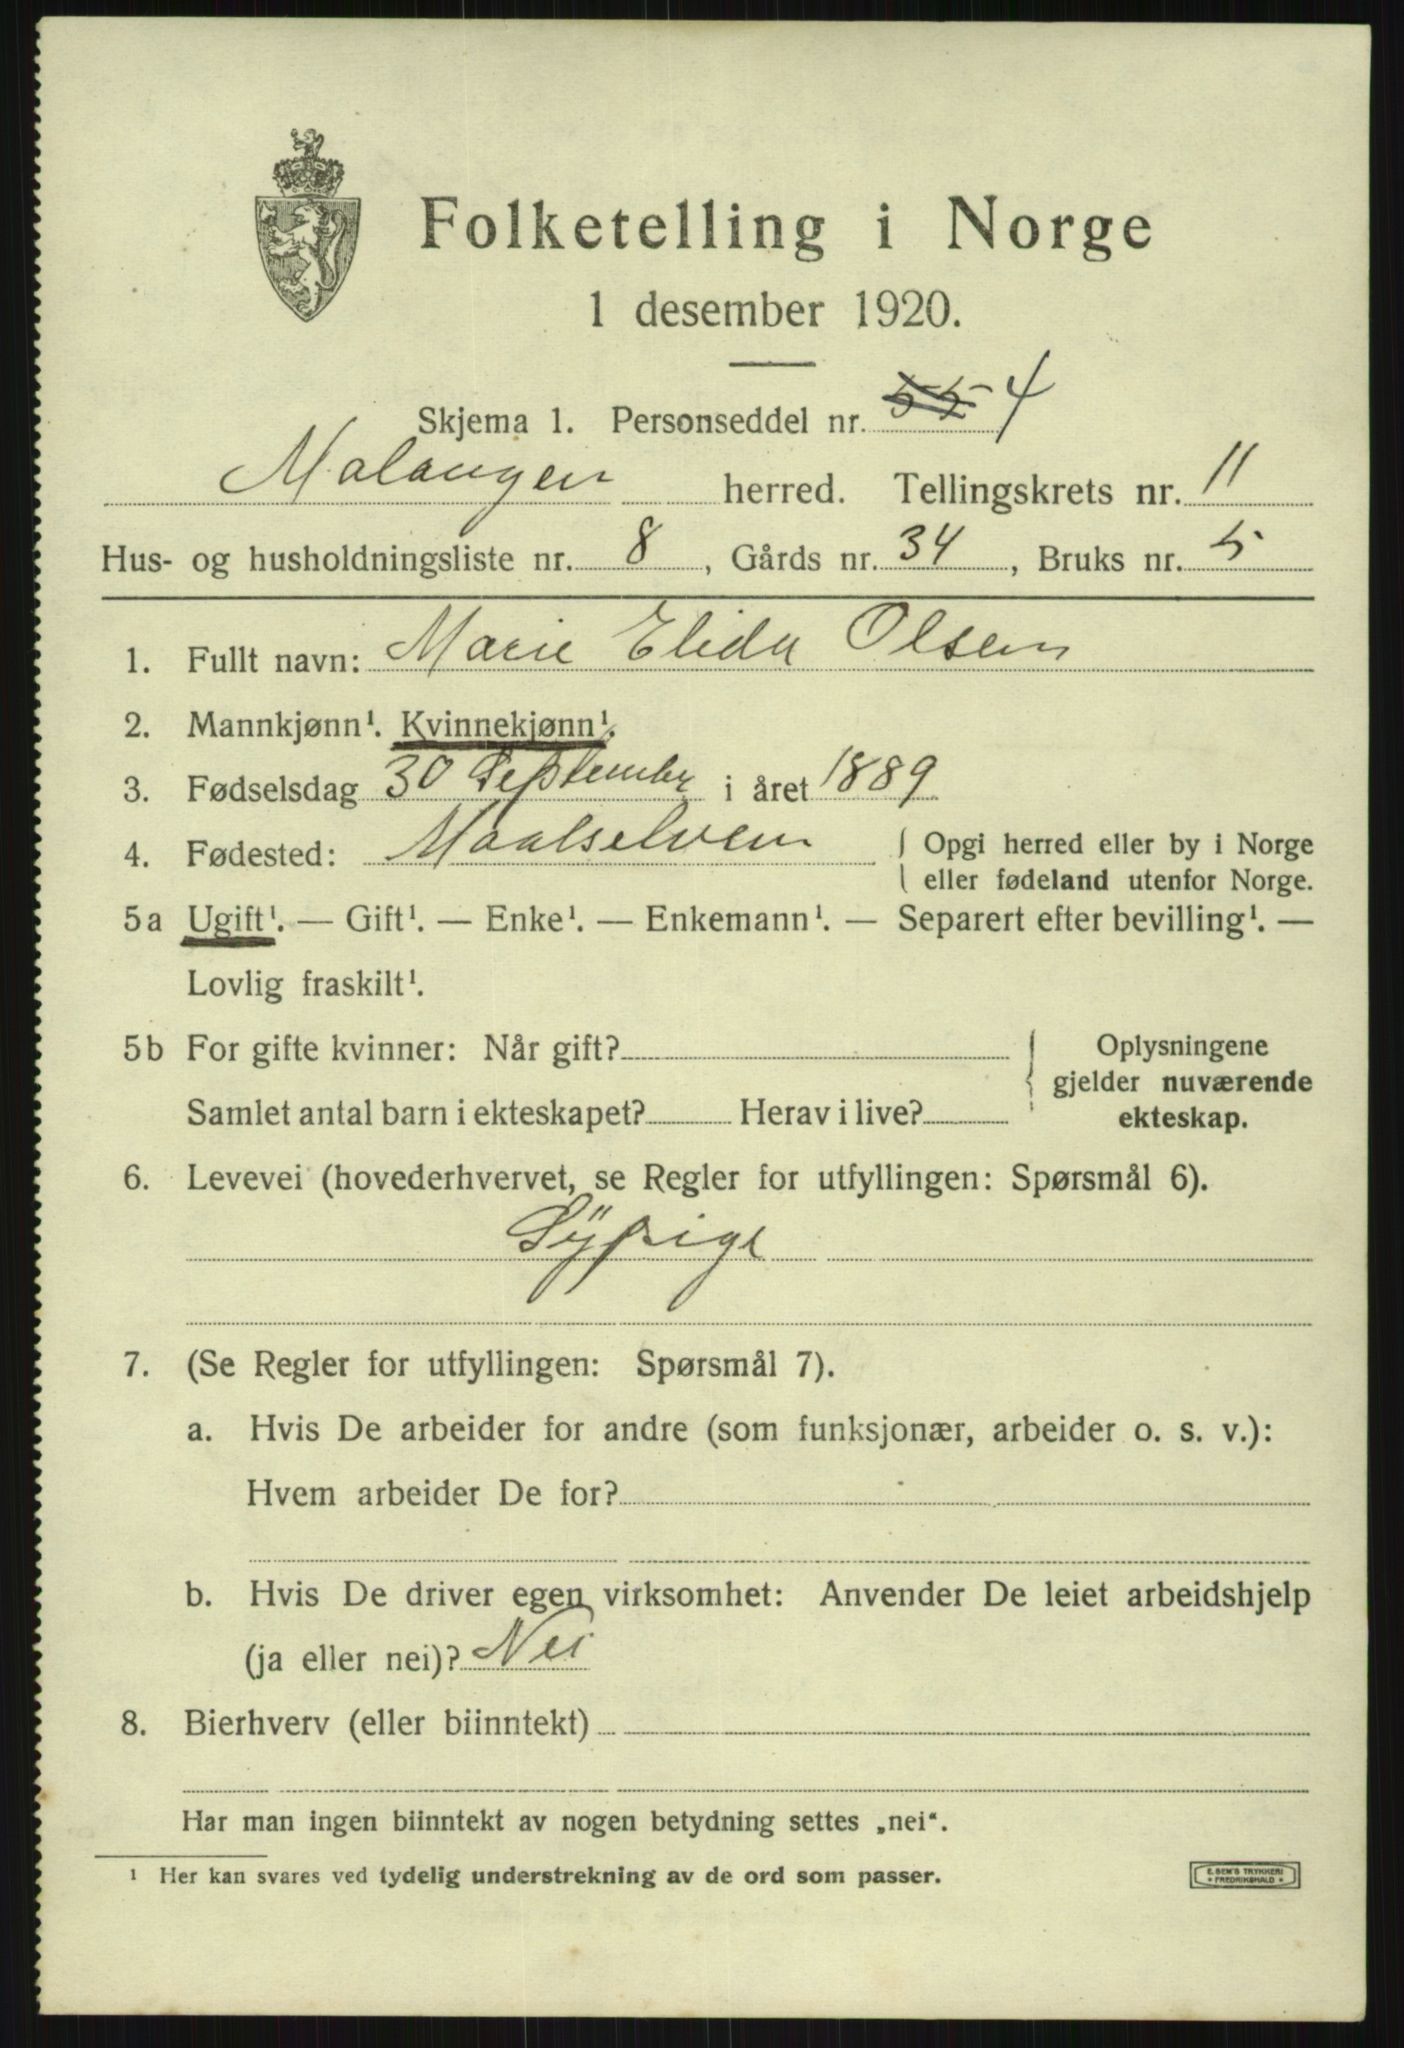 Folketelling i Norge
1 desember 1920.
Skjema 1. Personseddel nr. 55 4
Malangen herred. Tellingskrets nr. 11
Hus- og husholdningsliste nr. 8, Gårds nr. 34, Bruks nr. 5
1. Fullt navn: Marie Elida Olsen
2. Mannkjønn¹. Kvinnekjønn¹.
3. Fødselsdag 30 September i året 1889
4. Fødested: Maalselven { Opgi herred eller by i Norge
eller fødeland utenfor Norge.
5a Ugift¹. — Gift¹. — Enke¹. — Enkemann¹. — Separert efter bevilling¹. —
Lovlig fraskilt¹.
5b For gifte kvinner: Når gift? { Oplysningene
gjelder nuværende
Samlet antal barn i ekteskapet? Herav i live? ekteskap.
6. Levevei (hovederhvervet, se Regler for utfyllingen: Spørsmål 6).
Sÿpige
7. (Se Regler for utfyllingen: Spørsmål 7).
a. Hvis De arbeider for andre (som funksjonær, arbeider o. s. v.):
Hvem arbeider De for?
b. Hvis De driver egen virksomhet: Anvender De leiet arbeidshjelp
(ja eller nei)? Nei
8. Bierhverv (eller biinntekt)
Har man ingen biinntekt av nogen betydning settes „nei“.
¹ Her kan svares ved tydelig understrekning av de ord som passer.
E. SEM'S TRYKKERI
* FREDRIKSHALD *